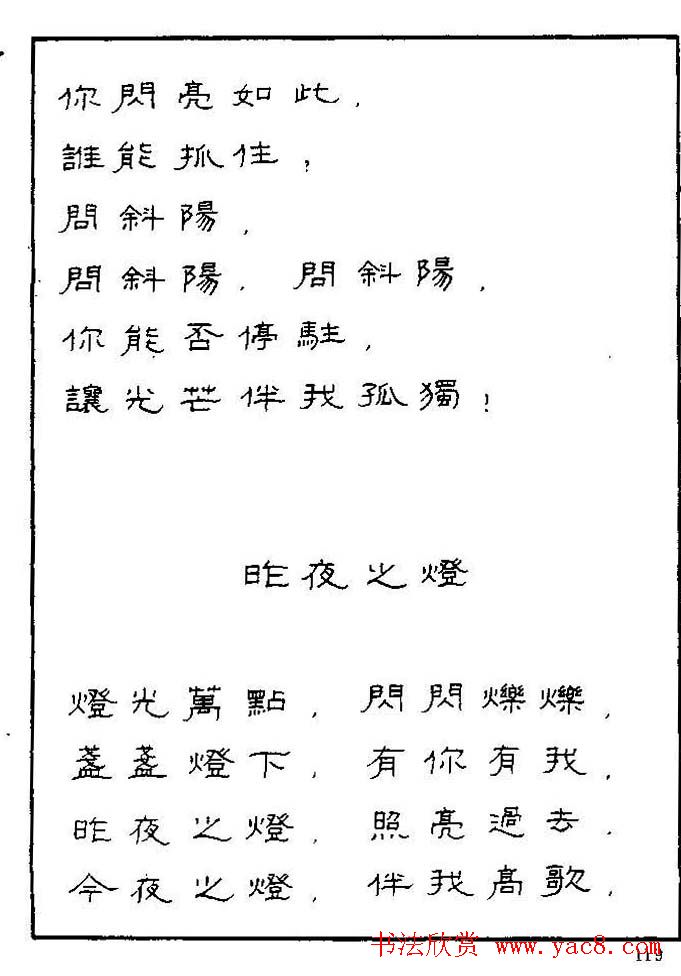 你閃亮如此，
誰能抓住？
問斜陽，
問斜陽，問斜陽，
你能否停駐，
讓光芒伴我孤獨！
昨夜之燈
燈光萬點，閃閃爍爍，
盞盞燈下，有你有我，
昨夜之燈，照亮過去，
今夜之燈，伴我高歌，
书法欣赏 www.yac8.com
119